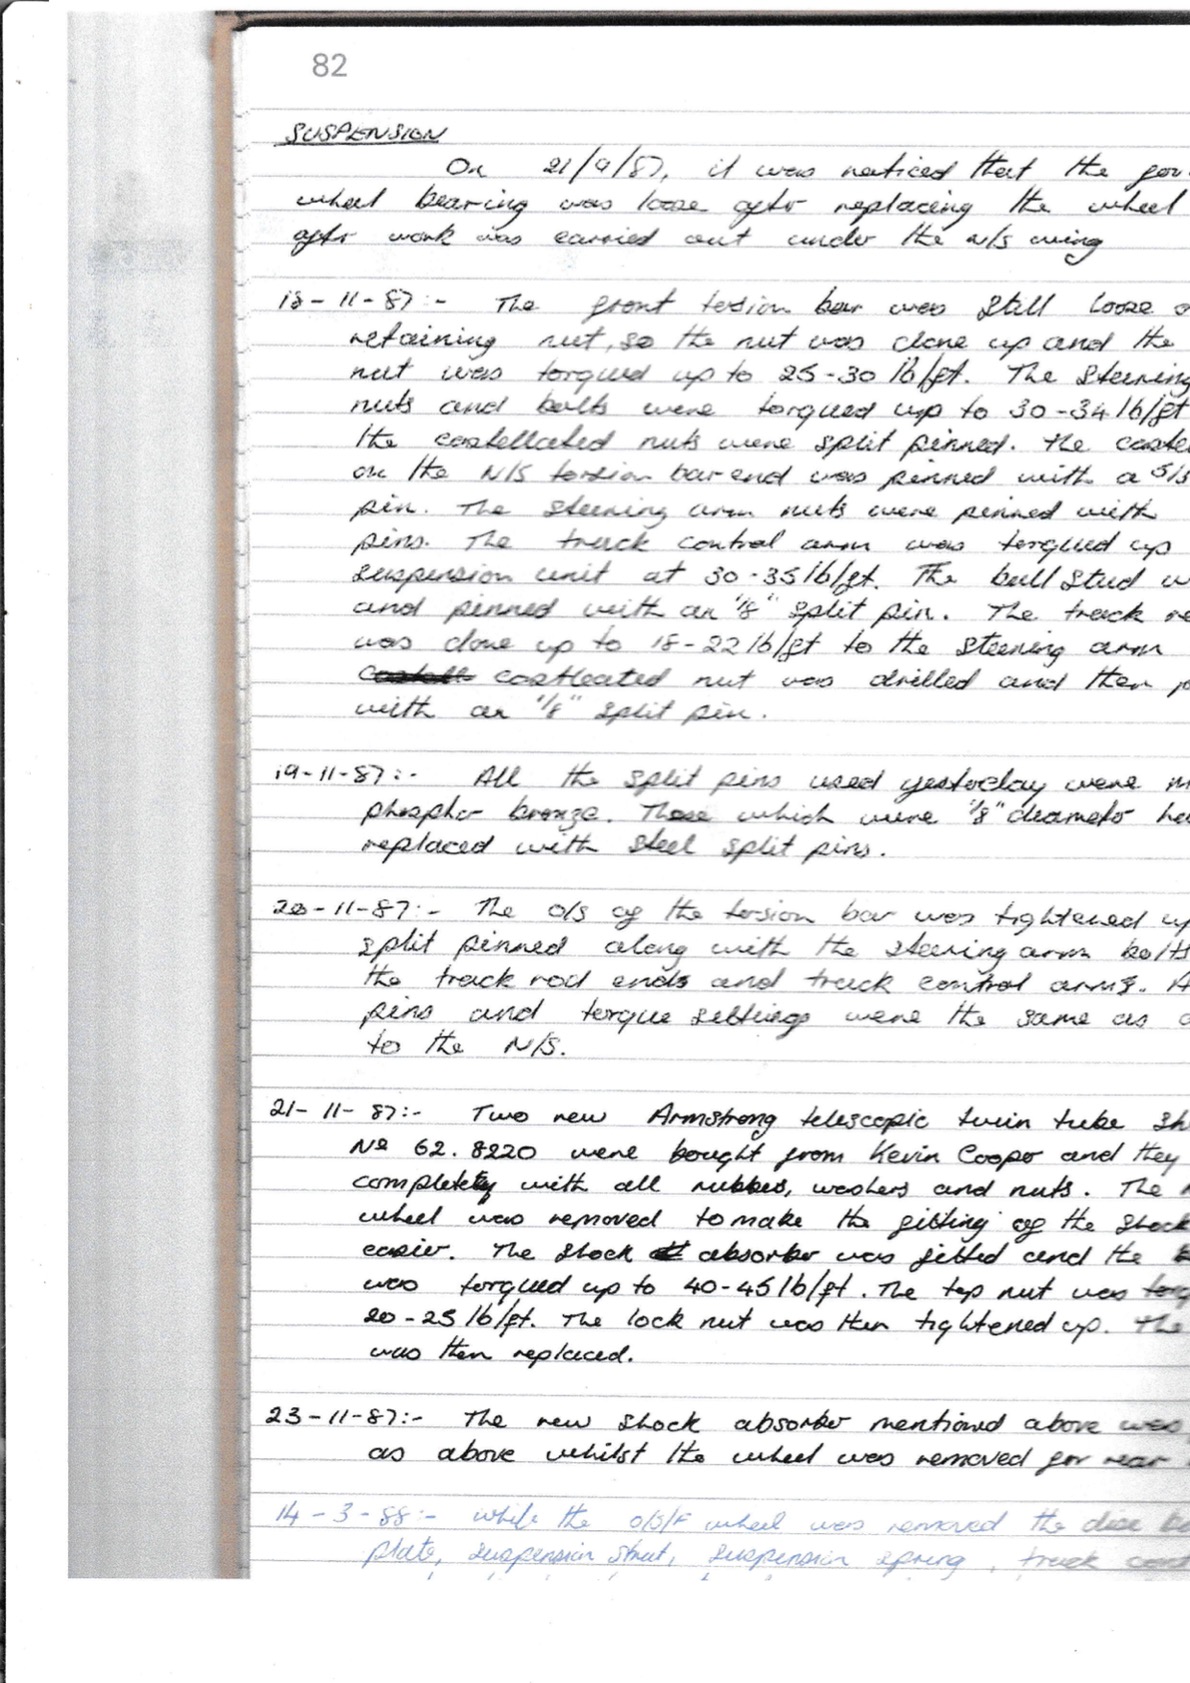 82
SUSPENSION
On 21/9/87, it was noticed that the
wheel bearing was loose after replacing the wheel
after work was carried out under the N/S wing
18-11-87:- The front torsion bar was still loose
retaining nut, so the nut was done up and the
nut was torqued up to 25-30 lb/ft. The steering
nuts and bolts were torqued up to 30-34 lb/ft
the castellated nuts were split pinned. The
on the N/S torsion bar end was pinned with a
pin. The steering arm nuts were pinned with
pins. The track control arm was torqued up
suspension unit at 30-35 lb/ft. The ball stud
and pinned with an "1/8" split pin. The track
was done up to 18-22 lb/ft to the steering arm
castleated nut was drilled and then
with an "1/8" split pin.
19-11-87:- All the split pins used yesterday were
phosphor bronze. Those which were "1/8" diameter
replaced with steel split pins.
20-11-87:- The O/S of the torsion bar was tightened up
split pinned along with the steering arm bolts
the track rod ends and track control arms.
pins and torque settings were the same as
to the N/S.
21-11-87:- Two new Armstrong telescopic twin tube
No 62.8220 were bought from Kevin Cooper and they
completely with all rubbers, washers and nuts. The
wheel was removed to make the fitting of the shock
easier. The shock absorber was fitted and the
was torqued up to 40-45 lb/ft. The top nut was
20-25 lb/ft. The lock nut was then tightened up. The
was then replaced.
23-11-87:- The new shock absorber mentioned above was
as above whilst the wheel was removed for rear
14-3-88:- while the O/S/F wheel was removed the disc
plate, suspension strut, suspension spring, track